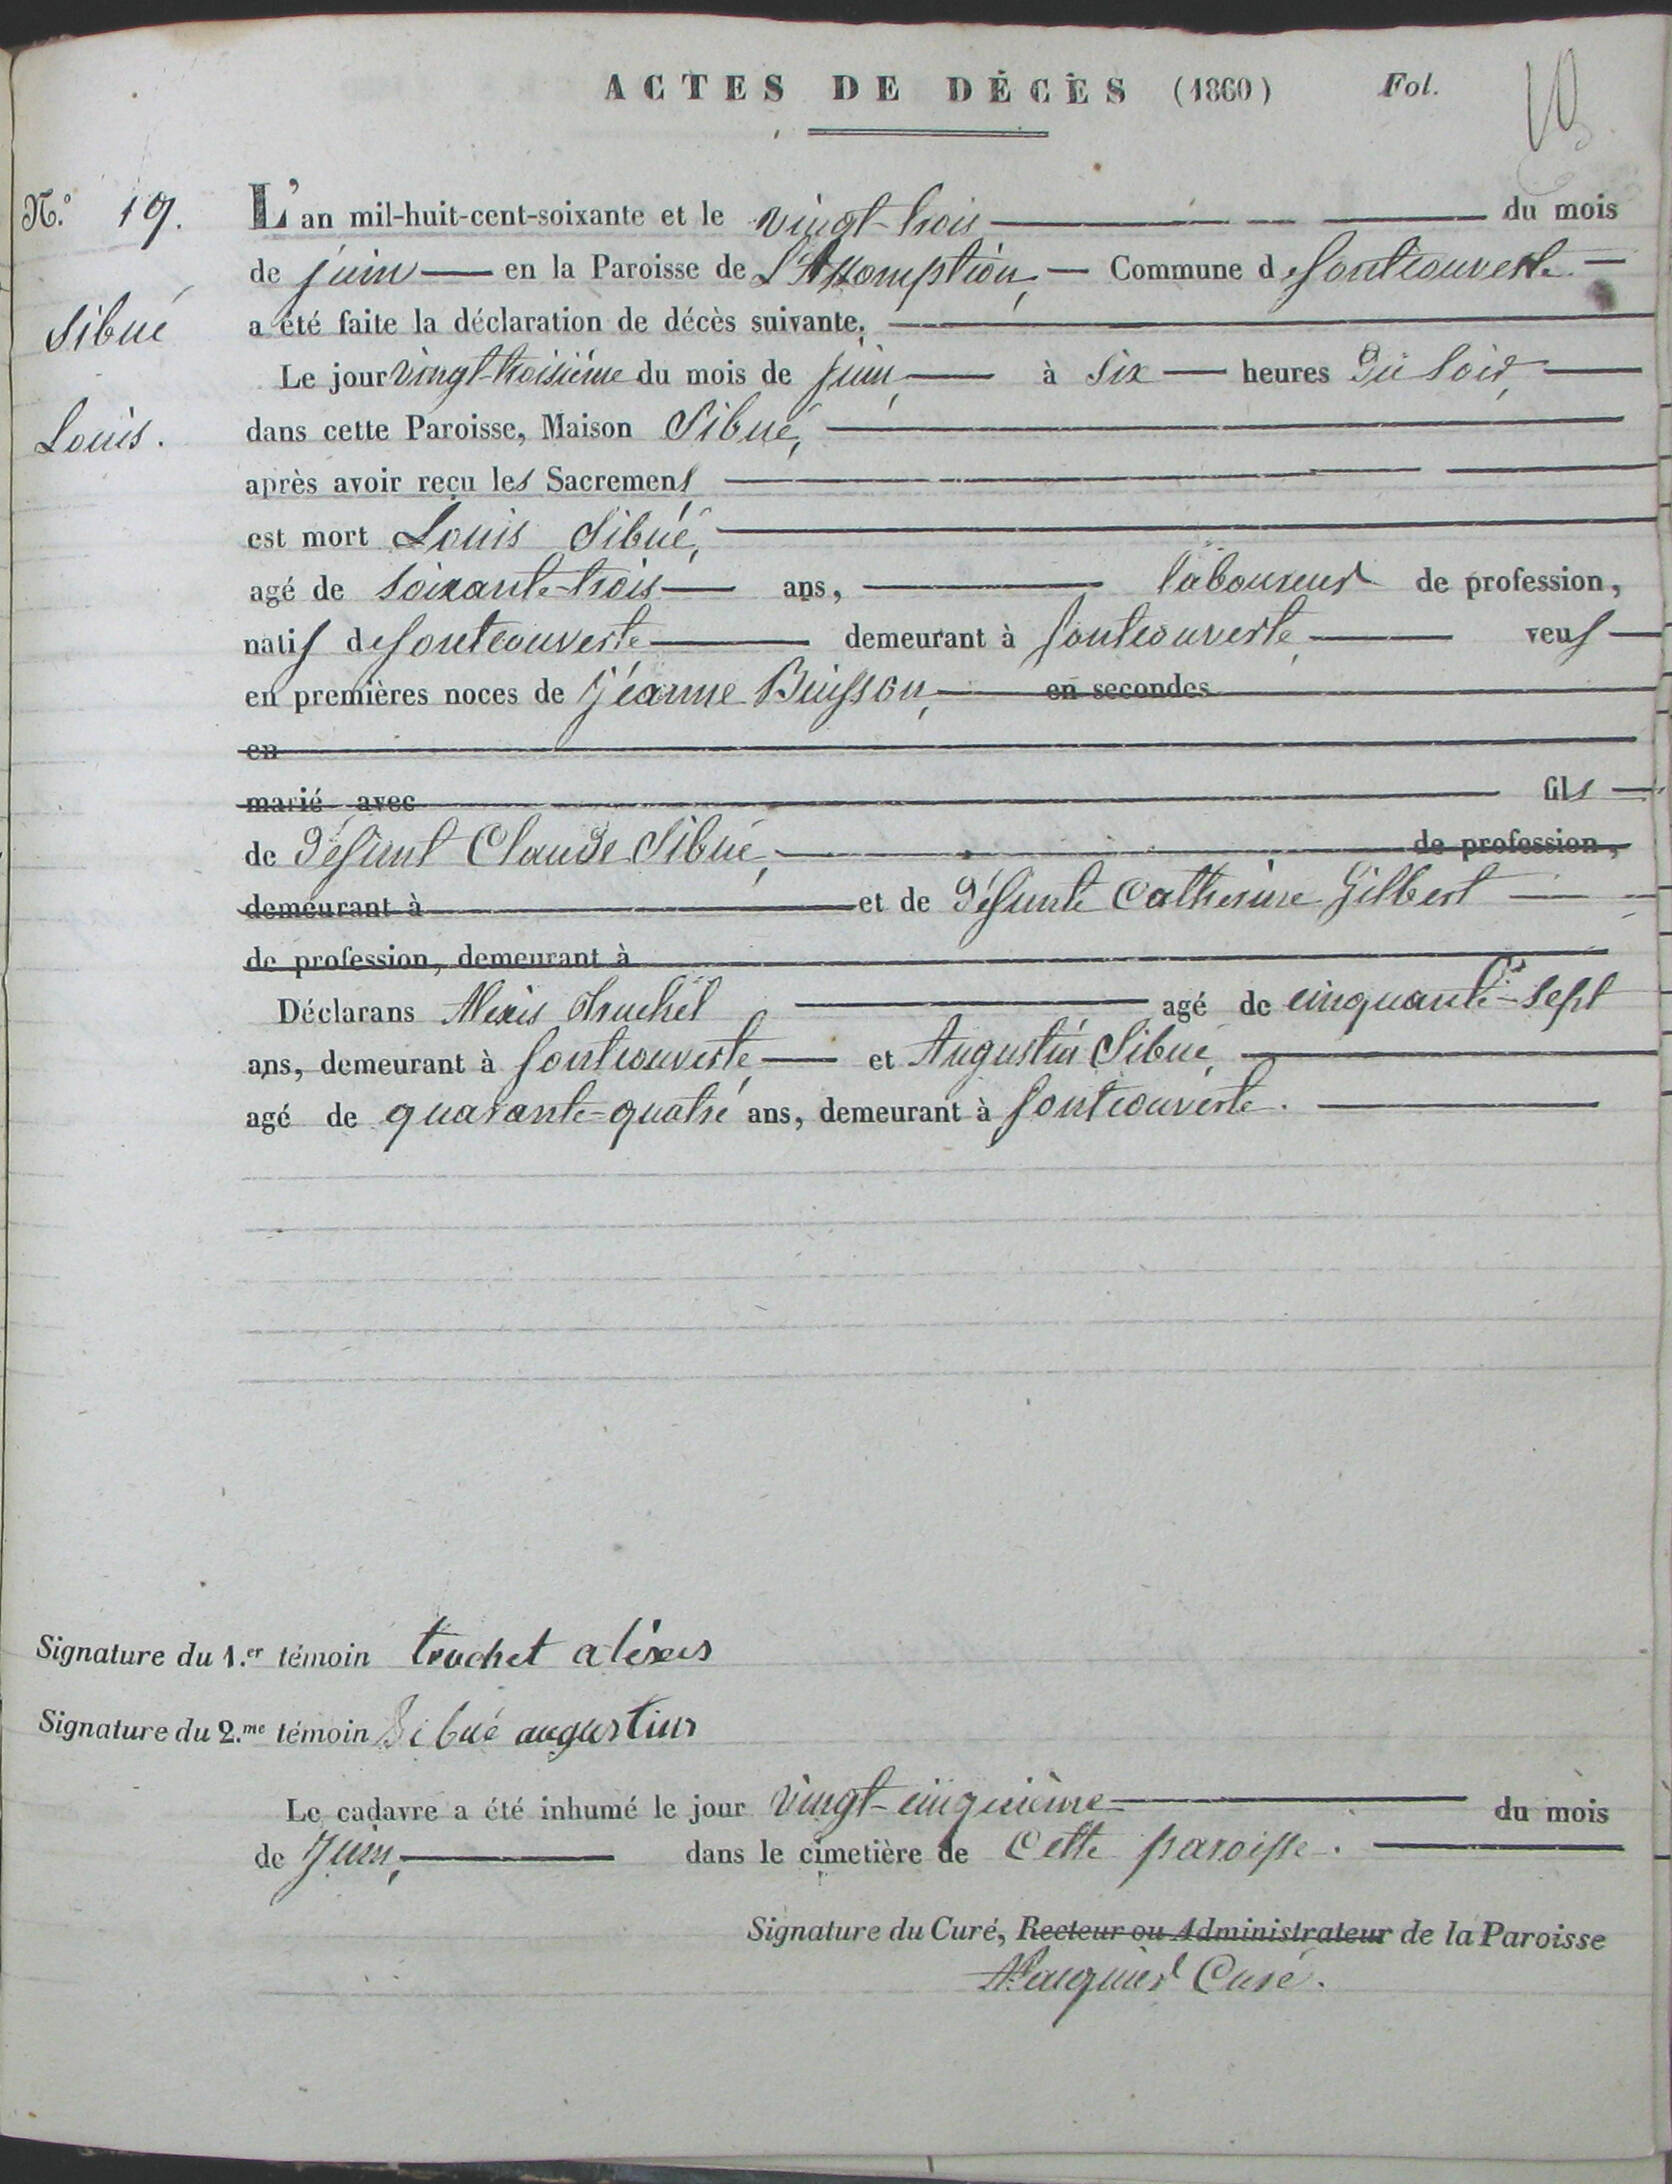 ACTES DE DÉCÈS (1860) Fol. 10
N.º 19. L'an mil-huit-cent-soixante et le vingt-trois du mois
de juin en la Paroisse de L'Assomption, Commune de fontcouverte
Sibué a été faite la déclaration de décès suivante.
Le jour vingt-troisième du mois de juin, à six heures du soir,
Louis. dans cette Paroisse, Maison Sibué,
après avoir reçu les Sacremens
est mort Louis Sibué,
agé de soixante-trois ans, laboureur de profession,
natif de fontcouverte demeurant à fontcouverte, veuf
en premières noces de Jéanne Buisson, en secondes
en
marié avec fils
de défunt Claude Sibué, de profession,
demeurant à et de défunte Catherine Gilbert
de profession, demeurant à
Déclarans Alexis Truchet agé de cinquante-sept
ans, demeurant à fontcouverte, et Augustin Sibué,
agé de quarante-quatre ans, demeurant à fontcouverte.
Signature du 1.er témoin truchet aléxis
Signature du 2.me témoin Sibué augustin
Le cadavre a été inhumé le jour vingt-cinquième du mois
de Juin, dans le cimetière de cette paroisse.
Signature du Curé, Recteur ou Administrateur de la Paroisse
Curé.